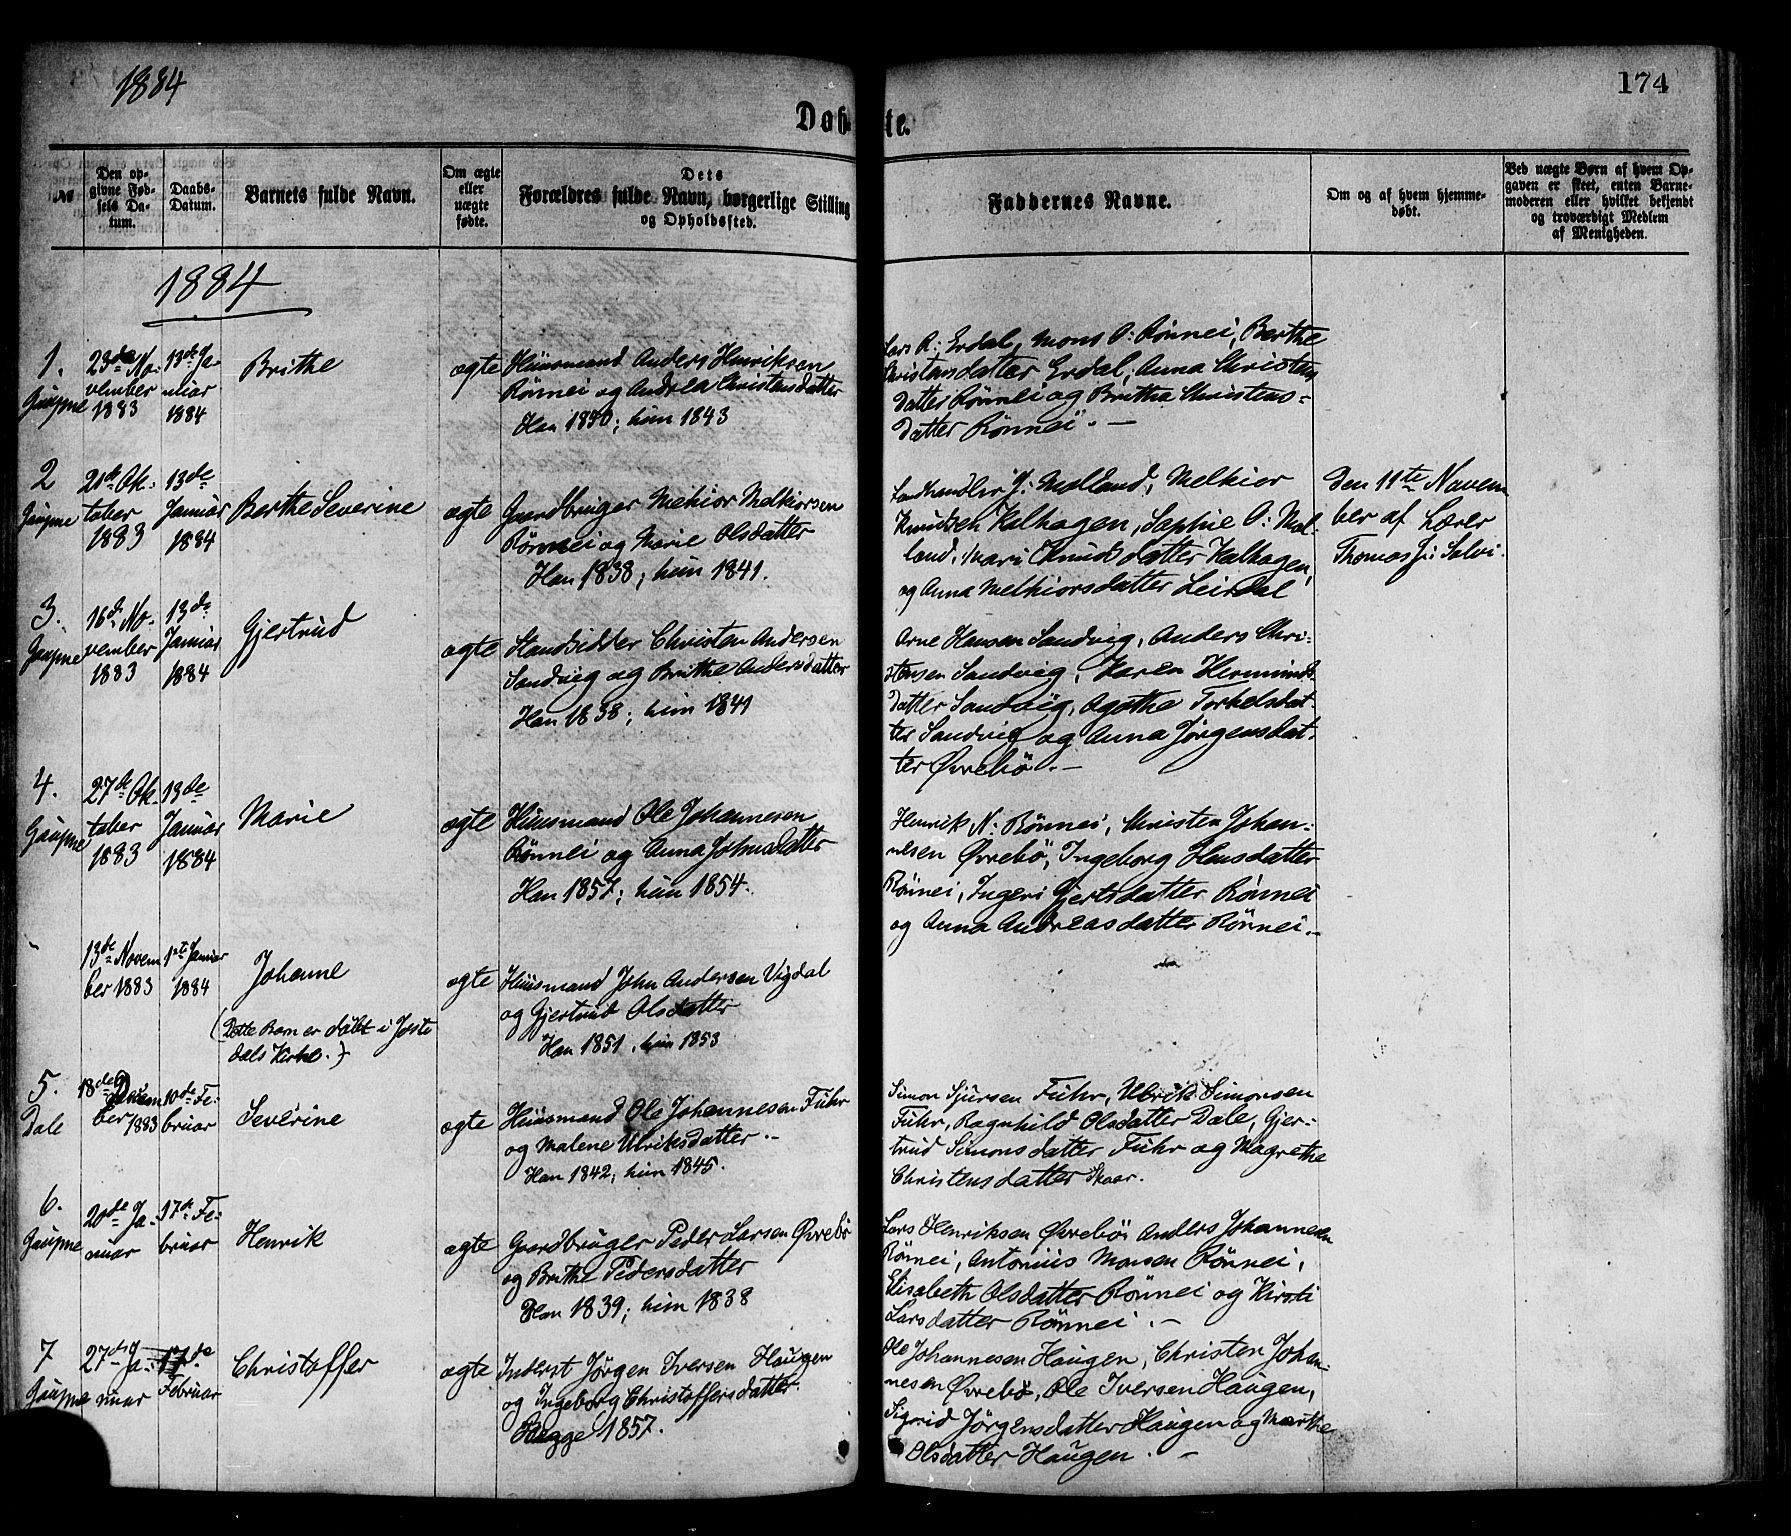 1884
174
Døbte.
No
Den opgivne Fødsels Datum.
Daabs-Datum.
Barnets fulde Navn.
Om ægte eller uægte fødte.
Dets Forældres fulde Navn, borgerlige Stilling og Opholdssted.
Faddernes Navne.
Om og af hvem hjemmedøbt.
Ved uægte Børn af hvem Opgaven er skeet, enten Barnemoderen eller hvilket bekjendt og troværdigt Medlem af Menigheden.
1884
1.
Gaupne
23de No-
vember
1883
13de Ja-
nuar
1884
Brithe
ægte
Huusmand Anders Henriksen
Rønnei og Andrea Christensdatter
Han 1890; hun 1843
Lars R. Erdal, Mons O. Rønnei, Berthe
Christensdatter Erdal, Anna Christens
datter Rønnei og Brithe Christens-
datter Rønnei. —
2
Gaupne
21de Ok-
tober
1883
13de
Januar
1884
Berthe Severine
ægte
Gaardbruger Melkior Melkiorsen
Rønnei og Marie Olsdatter
Han 1838, hun 1841.
Landhandler J. Molland, Melkior
Knudsen Kalhagen, Sophie O. Mol-
land, Mari Knudsdatter Kalhagen,
og Anna Melkiorsdatter Leirdal
Den 11te Novem
ber af Lærer
Thomas J. Solvi.
3.
Gaupne
16de No-
vember
1883
13de
Januar
1884
Gjertrud
ægte
Strandsidder Christen Andersen
Sandvig og Brithe Andersdatter
Han 1838; hun 1841
Arne Hansen Sandvig, Anders Chri-
stensen Sandvig, Karen Hermunds-
datter Sandvig, Agathe Torkelsdat-
ter Sandvig og Anna Jørgensdat-
ter Øvrebø. —
4.
Gaupne
27de Ok-
tober
1883
13de
Januar
1884
Marie
ægte
Huusmand Ole Johannesen
Rønnei og Anna Johnsdatter
Han 1857; hun 1854.
Henrik N. Rønnei, Christen Johan-
nesen Øvrebø, Ingeborg Hansdatter
Rønnei, Ingeri Gjertsdatter Rønnei
og Anna Andreasdatter Rønnei. —
13de Novem
ber 1883
1ste Januar
1884
Johanne
(Dette Barn er døbt i Joste
dals Kirke.)
ægte
Huusmand John Andersen Vigdal
og Gjertrud Olsdatter
Han 1851, hun 1853
5.
Dale
18de Decem
ber 1883
10de Fe-
bruar
Severine
ægte
Huusmand Ole Johannesen Fuhr
og Malene Ulriksdatter. -
Han 1842; hun 1845.
Simon Sjursen Fuhr, Ulrik Simonsen
Fuhr, Ragnhild Olsdatter Dale, Gjer-
trud Simonsdatter Fuhr og Magrethe
Christensdatter Skaar.
6.
Gaupne
20de Ja-
nuar
17de Fe-
bruar
Henrik
ægte
Gaardbruger Peder Larsen Øvrebø
og Brithe Pedersdatter
Han 1839; hun 1838
Lars Henriksen Øvrebø, Anders Johannesen
Rønnei, Antonius Monsen Rønnei,
Elisabeth Olsdatter Rønnei og Kirsti
Larsdatter Rønnei. —
7
Gaupne
27de Ja-
nuar
17de
Februar
Christoffer
ægte
Inderst Jørgen Iversen Haugen
og Ingeborg Christoffersdatter.
Begge 1857.
Ole Johannesen Haugen, Christen Johan-
nesen Øvrebø, Ole Iversen Haugen,
Sigrid Jørgensdatter Haugen og Marthe
Olsdatter Haugen. —